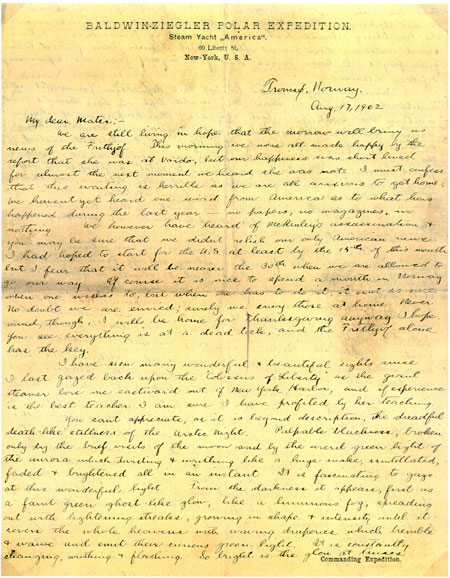 BALDWIN-ZIEGLER POLAR EXPEDITION.
Steam Yacht „America“.
60 Liberty St.
New-York, U. S. A.
Tromsø, Norway.
Aug. 17, 1902
My dear Mater;-
We are still living in hope that the morrow will bring us
news of the Frithjof. This morning we were all made happy by the
report that she was at Vardo, but our happiness was short lived
for almost the next moment we heard she was not. I must confess
that this waiting is horrible as we are all anxious to get home.
We havent yet heard one word from America as to what has
happened during the last year — no papers, no magazines, no
nothing We however have heard of McKinley's assassination &
you may be sure that we didn't our only American news
I had hoped to start for the U.S. at least by the 15th of this month
but I fear that it will be nearer the 30th when we are allowed to
go our way. Of course it is nice to spend a month in Norway
when one wishes to, but when one has to it isnt so nice
No doubt we are envied; surely we envy those at home. Never
mind, though, I will be home for Thanksgiving anyway I hope.
You see everything is at a dead lock, and the Frithjof alone
has the key.
I have seen many wonderful & beautiful sights since
I last gazed back upon the "Goddess of Liberty" as the giant
steamer bore me eastward out of New York Harbor, and if experience
is the best teacher I am sure I have profited by her teaching.
You cant appreciate, as it is beyond description, the dreadful
death-like stillness of the Arctic Night. Palpable blackness, broken
only by the brief visits of the moon and by the weird green light of
the aurora which twisting & writhing like a huge snake, scintillated,
faded & brightened all in an instant It is fascinating to gaze
at this wonderful light From the darkness it appears, first as
a faint green ghost-like glow like a luminous fog, spreading
out with lightening streaks, growing in shape & intensity until it
covers the whole heavens with waving draperies which tremble
& waive and emit their green light. It is constantly
changing, writhing & flashing. So bright is the glow at times
Commanding Expedition.